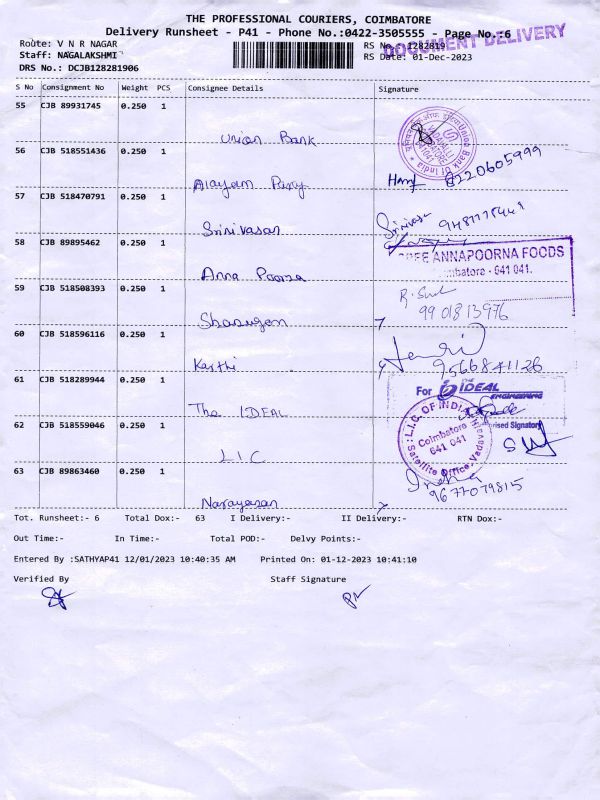 THE PROFESSIONAL COURIERS, COIMBATORE
Delivery Runsheet - P41 - Phone No.:0422-3505555 - Page No.:6
DOCUMENT DELIVERY
Route: V N R NAGAR
RS No.: 1282819
Staff: NAGALAKSHMI
RS Date: 01-Dec-2023
DRS No.: DCJB128281906
S No Consignment No Weight PCS Consignee Details Signature
55 CJB 89931745 0.250 1
Union Bank
56 CJB 518551436 0.250 1
8220605999
57 CJB 518470791 0.250 1
Srinivasan
58 CJB 89895462 0.250 1
ANNAPOORNA FOODS
641 041.
Anna
59 CJB 518508393 0.250 1
9901813976
60 CJB 518596116 0.250 1
9566841126
Karthi
61 CJB 518289944 0.250 1
For THE IDEAL ENGINEERING
The IDEAL
62 CJB 518559046 0.250 1
L.I.C. OF INDIA
Coimbatore
641 041
Satellite Office,
LIC
63 CJB 89863460 0.250 1
9677079815
Narayanan
Tot. Runsheet:- 6 Total Dox:- 63 I Delivery:- II Delivery:- RTN Dox:-
Out Time:- In Time:- Total POD:- Delvy Points:-
Entered By :SATHYAP41 12/01/2023 10:40:35 AM Printed On: 01-12-2023 10:41:10
Verified By Staff Signature